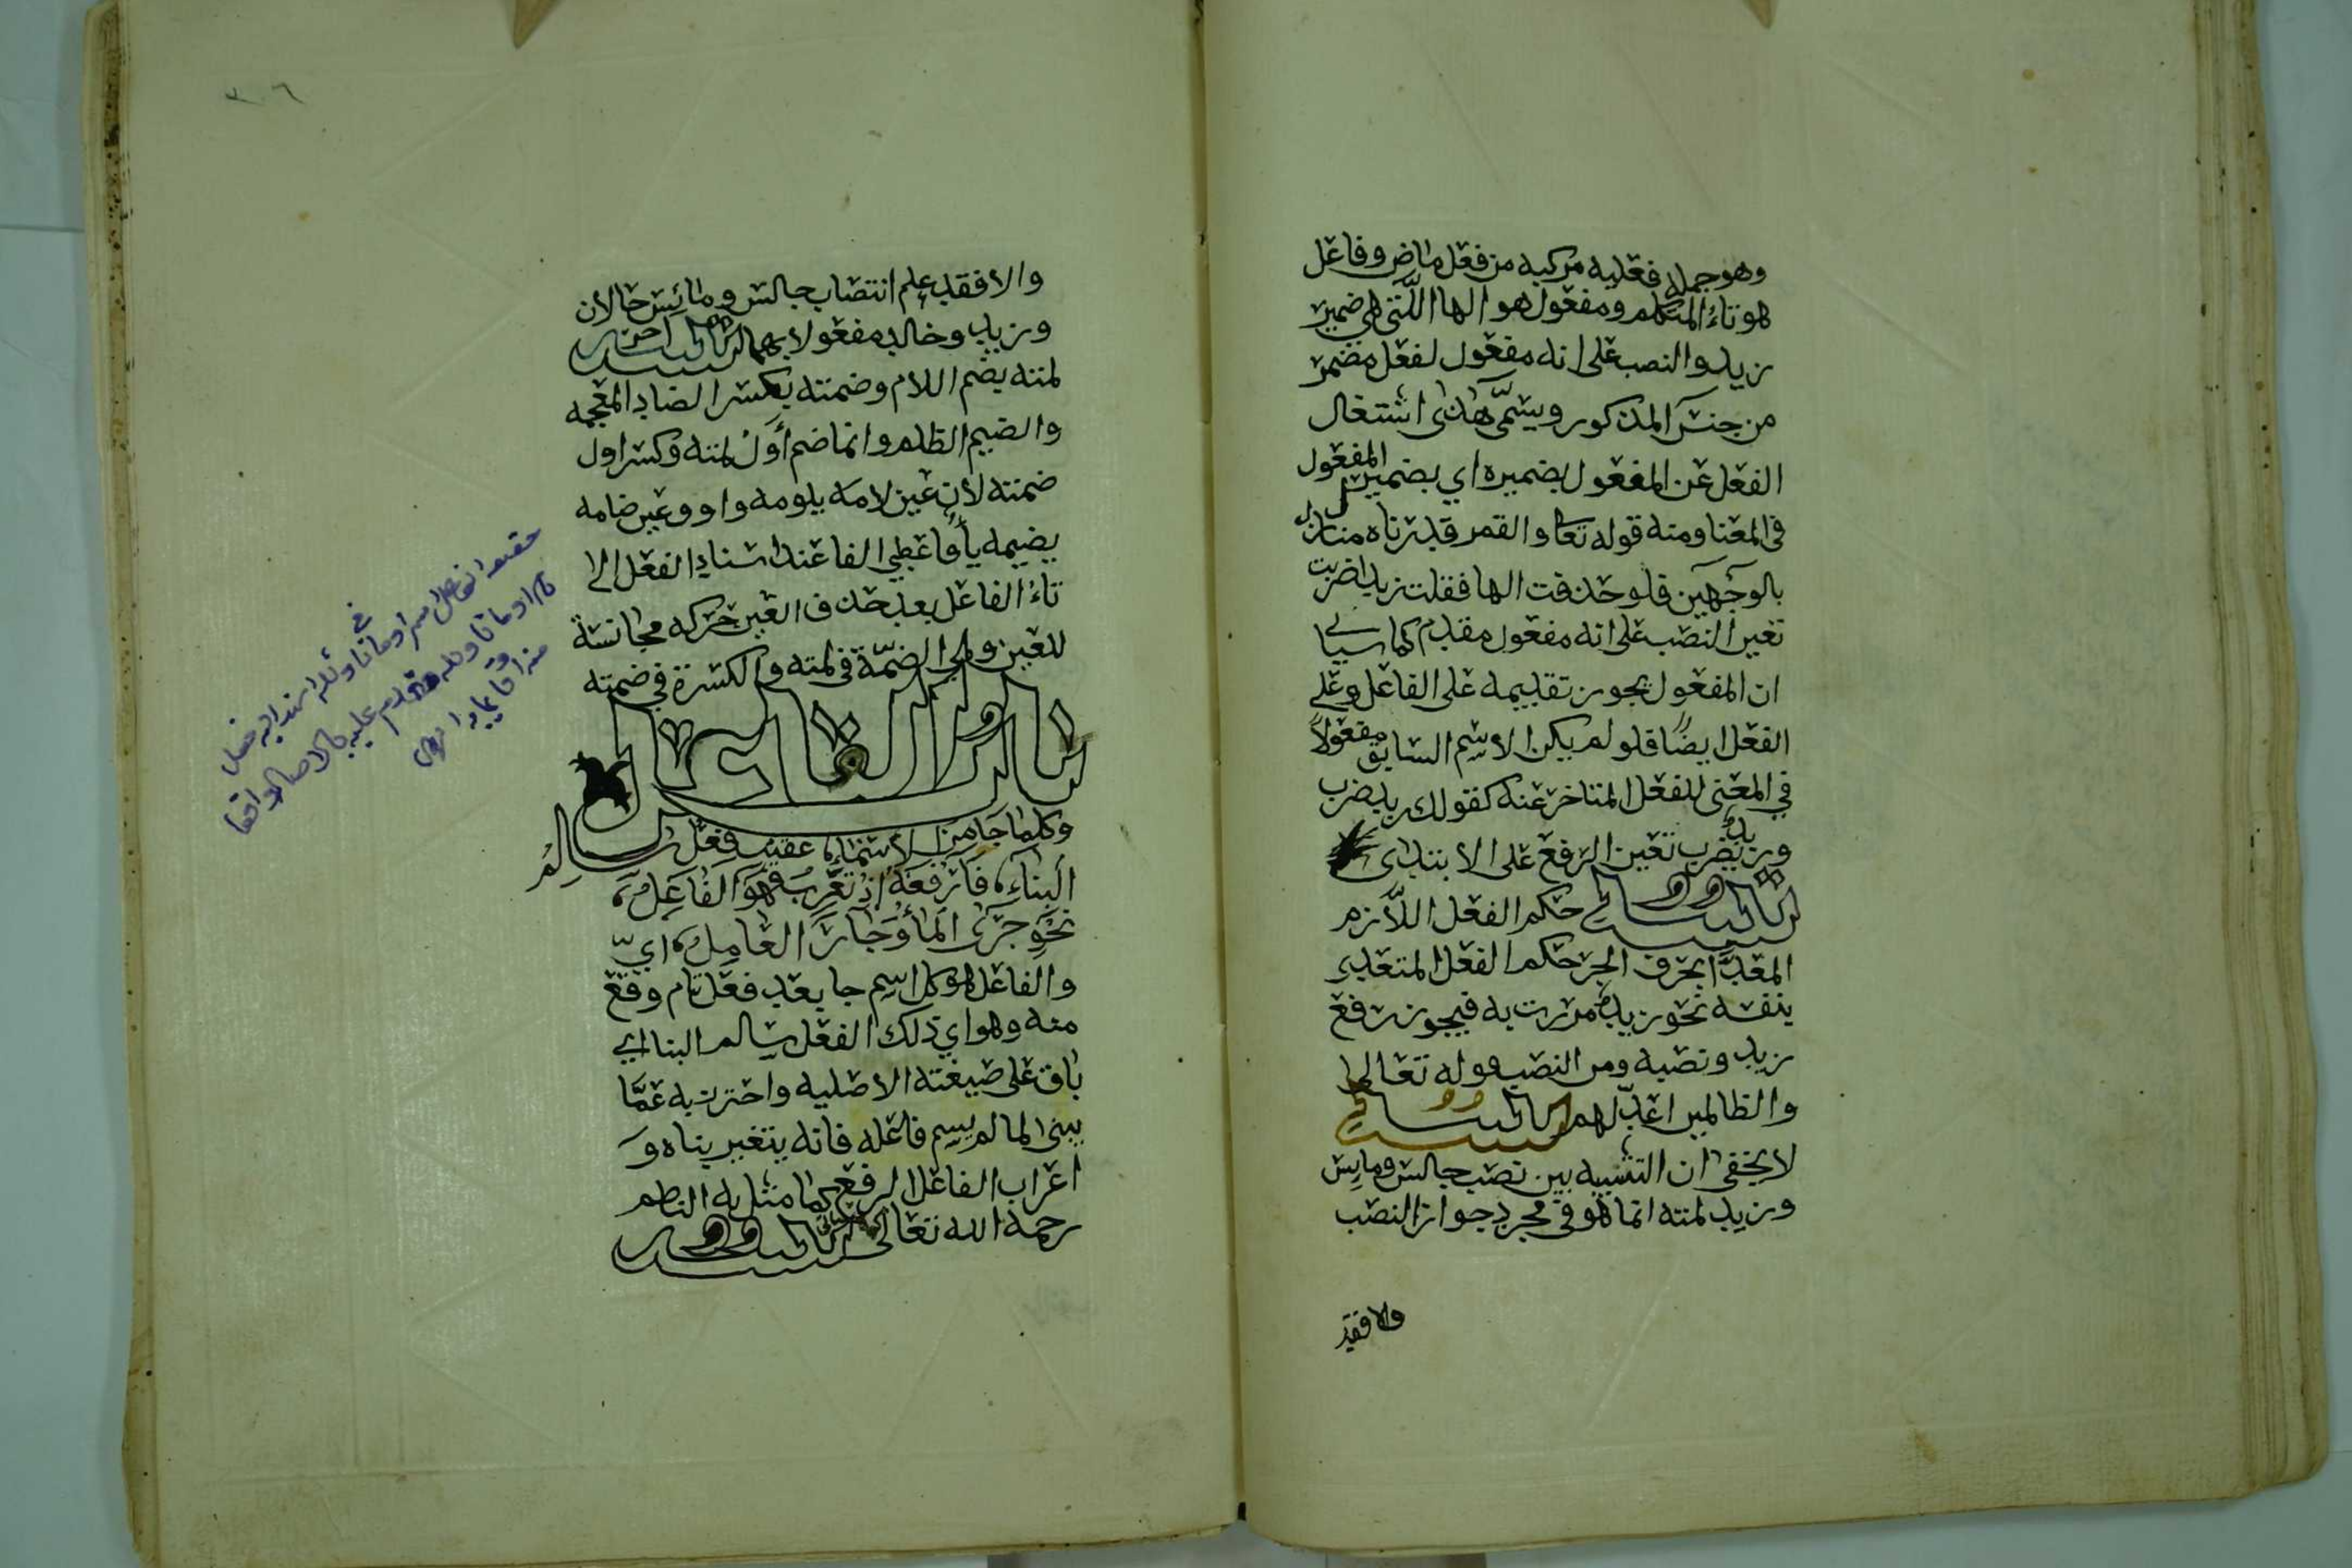 وهو جملة فعليه مركبه من فعل ماض وفاعل
هو تاء المتكلم ومفعول هو الها اللتي هي ضمير
زيد والنصب على انه مفعول لفعل مضمر
من جنس المذكور ويسمّى هذا اشتغال
الفعل عن المفعول بضميره اي بضمير المفعول
في المعنا ومنه قوله تعا والقمر قدرناه منازل
بالوجهين فلو حذفت الها فقلت زيدا ضربت
تعين النصب على انه مفعول مقدم كما سياتي
ان المفعول يجوز تقديمه على الفاعل وعلى
الفعل ايضًا فلو لم يكن الاسم السابق مفعولاً
في المعنى للفعل المتاخر عنه كقولك زيد ضرب
وزيدٌ يضرب تعين الرفع على الابتداى
تنبيه حكم الفعل اللّازم
المعدّا بحرف الجر حكم الفعل المتعدى
بنفسه نحو زيد مررت به فيجوز رفع
زيد ونصبه ومن النصب قوله تعالى
والظالمين اعدّ لهم تنبيه
لا يخفى ان التشبيه بين نصب جالس ومايس
وزيد لمته انما هو في مجرد جواز النصب
والا فقد
٣٠٦
والا فقد علم انتصاب جالس ومائس حالان
وزيد وخالد مفعولا بهما تنبيه اخر
لمته بضم اللام وضمته بكسر الضاد المعجمه
والضيم الظلم وانما ضم أول لمته وكسر اول
ضمته لان عين لامه يلومه واو وعين ضامه
يضيمه يأ فاعطي الفا عند اسناد الفعل الا
تاءُ الفاعل بعد حذف العين حركه مجانسة
للعين وهي الضمّة في لمته والكسرة في ضمته
باب الفاعل
وكلما جا من الأسماء عقيب فعل سالم
البناء فارفعه اذ تعرب فهو الفاعل
نحو جرى الما وجار العامل اي
والفاعل هو كل اسم جا بعد فعل تام وقع
منه وهو اي ذلك الفعل سالم البنا اي
باق على صيغته الاصليه واحترز به عمّا
يبنى لما لم يسم فاعله فانه يتغير بناه و
اعراب الفاعل الرفع كما مثل به الناظم
رحمه الله تعالى تنبيه